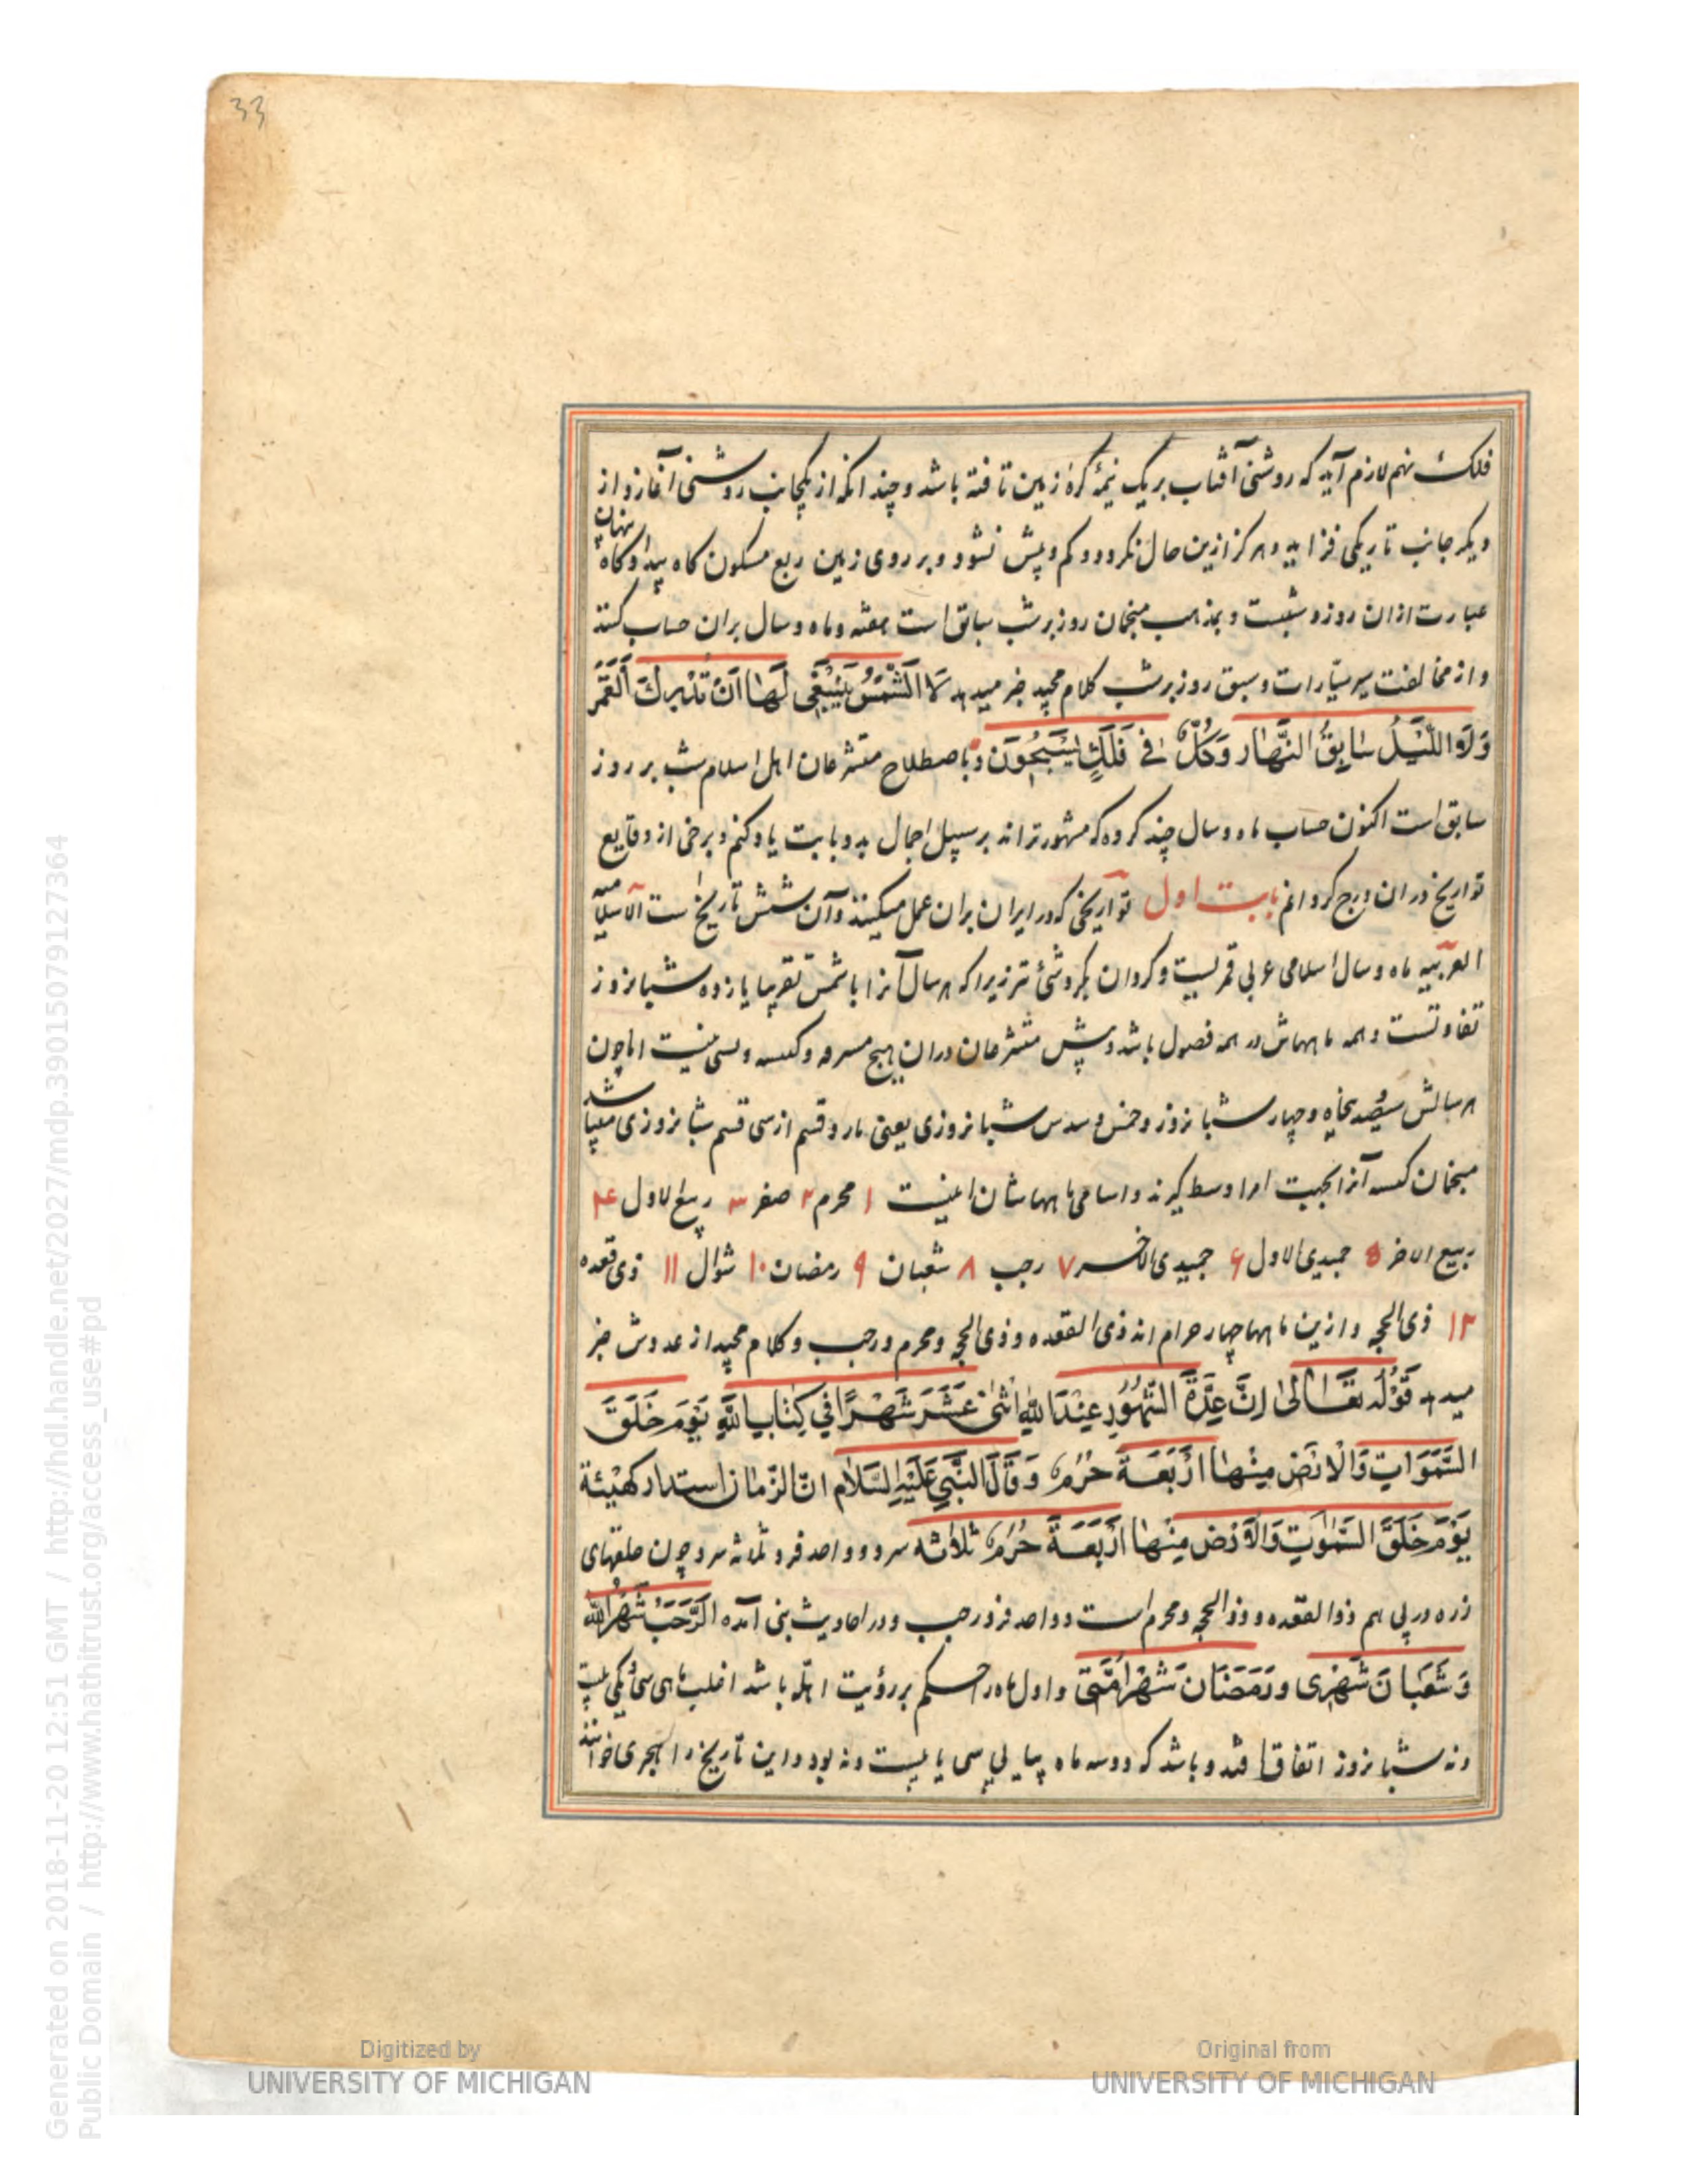 33
فلک نهم لازم آید که روشنی آفتاب بر یک نیمهٔ کرهٔ زمین تافته باشد و چندانکه از یکجانب روشنی آغازد از
دیگر جانب تاریکی فزاید و هرگز ازین حال نگردد و کم و بیش نشود و بر روی زمین ربع مسکون گاه پیدا و گاه پنهان
عبارت ازان روز و شبست و بمذهب منجمان روز بر شب سابق است هفته و ماه و سال بران حساب کنند
و از مخالفت سیر سیارات و سبق روز بر شب کلام مجید خبر میدهد لَا الشَّمْسُ يَنْبَغِي لَهَا اَنْ تُدْرِكَ الْقَمَرَ
وَلَا اللَّيْلُ سَابِقُ النَّهَارِ وَكُلٌّ فِي فَلَكٍ يَسْبَحُونَ و باصطلاح متشرعان اهل اسلام شب بر روز
سابق است اکنون حساب ماه و سال چند گروه که مشهورتراند بر سبیل اجمال بدو بابت یاد کنم و برخی از وقایع
تواریخ دران درج گردانم بابت اول تواریخی که در ایران بران عمل میکنند و آن شش تاریخ است الاسلامیه
العربیه ماه و سال اسلامی عربی قمریست و گردان بگردشی تر زیرا که هر سال آنرا با شمس تقریبا یازده شبانروز
تفاوتست و همه ماههاش در همه فصول باشد و پیش متشرعان دران هیچ مسرقه و کبسه و نسی نیست اما چون
هر سالش سیصد پنجاه و چهار شبانروز و خمس و سدس شبانروزی یعنی یازده قسم از سی قسم شبانروزی میباشد
منجمان کبسه آنرا بجهت امر اوسط گیرند و اسامی ماههاشان اینست ۱ محرم ۲ صفر ۳ ربیع الاول ۴
ربیع الاخر ۵ جمیدی الاول ۶ جمیدی الاخر ۷ رجب ۸ شعبان ۹ رمضان ۱۰ شوال ۱۱ ذی قعده
۱۲ ذی الحجه و ازین ماهها چهار حرام اند ذی القعده و ذی الحجه و محرم و رجب و کلام مجید از عدوش خبر
میدهد قَوْلُهُ تَعَالَىٰ اِنَّ عِدَّةَ الشُّهُورِ عِنْدَ اللهِ اثْنَى عَشَرَ شَهْرًا فِي كِتَابِ اللهِ يَوْمَ خَلَقَ
السَّمَوَاتِ وَالْاَرْضَ مِنْهَا اَرْبَعَةٌ حُرُمٌ وَقَالَ النَّبِي عَلَيْهِ السَّلَام انّ الزّمان استدار كهيئة
يَوْمَ خَلَقَ السَّمٰوٰتِ وَالْاَرْضَ مِنْهَا اَرْبَعَةٌ حُرُمٌ ثلاثه سرد و واحد فرد ثلاثه سرد چون حلقهای
زره در پی هم ذوالقعده و ذوالحجه و محرم است و واحد فرد رجب و در احادیث نبی آمده الرَّجَبُ شَهْرُ اللهِ
وَ شَعْبَان شَهْرِى وَ رَمَضَان شَهْرُ اُمَّتِى و اول ماه در اسلام بر رؤیت اهله باشد اغلب ماهی سی و یکی بیست
و نه شبانروز اتفاق افتد و باشد که دو سه ماه پیاپی سی یا بیست و نه بود و این تاریخ را هجری خوانند
Generated on 2018-11-20 12:51 GMT / http://hdl.handle.net/2027/mdp.39015079127364
Public Domain / http://www.hathitrust.org/access_use#pd
Digitized by
UNIVERSITY OF MICHIGAN
Original from
UNIVERSITY OF MICHIGAN